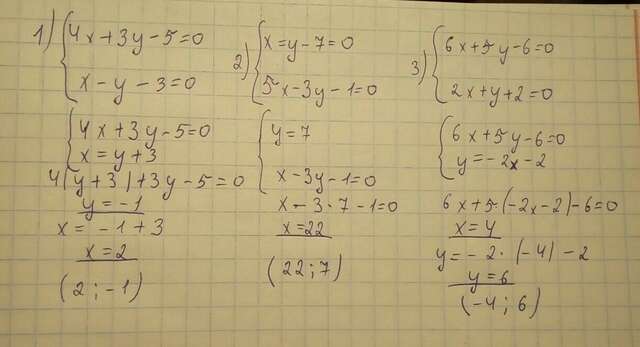 1) { 4x+3y-5=0
x-y-3=0
{ 4x+3y-5=0
x=y+3
4(y+3)+3y-5=0
y=-1
x=-1+3
x=2
(2;-1)
2) { x=y-7=0
5x-3y-1=0
{ y=7
x-3y-1=0
x-3·7-1=0
x=22
(22;7)
3) { 6x+5y-6=0
2x+y+2=0
{ 6x+5y-6=0
y=-2x-2
6x+5(-2x-2)-6=0
x=4
y=-2·(-4)-2
y=6
(-4;6)